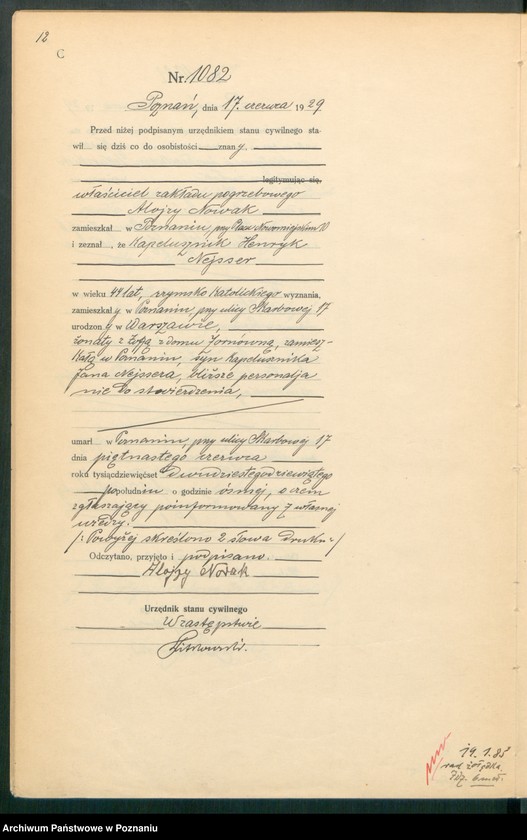 12
C
Nr. 1082
Poznań, dnia 17. czerwca 1929
Przed niżej podpisanym urzędnikiem stanu cywilnego sta-
wił się dziś co do osobistości znany.
legitymując się,
właściciel zakładu pogrzebowego
Alojzy Nowak
zamieszkał w Poznaniu, przy Placu Nowomiejskim 10
i zeznał, że Kapelusznik Henryk
Nejsser
w wieku 44 lat, rzymsko katolickiego wyznania,
zamieszkały w Poznaniu, przy ulicy Skarbowej 17
urodzony w Warszawie,
żonaty z Zofją z domu Jornówną, zamiesz-
kałą w Poznaniu, syn kapelusznika
Jana Nejssera, bliższe personalja
nie do stwierdzenia,
umarł w Poznaniu, przy ulicy Skarbowej 17
dnia piętnastego czerwca
roku tysiącdziewięćset dwudziestegodziewiątego
popołudniu o godzinie ósmej, o czem
zgłaszający poinformowany z własnej
wiedzy.
/: Powyżej skreślono 2 słowa druku :/
Odczytano, przyjęto i podpisano.
Alojzy Nowak
Urzędnik stanu cywilnego
W zastępstwie
19.1.85
rad żołądka
Archiwum Państwowe w Poznaniu